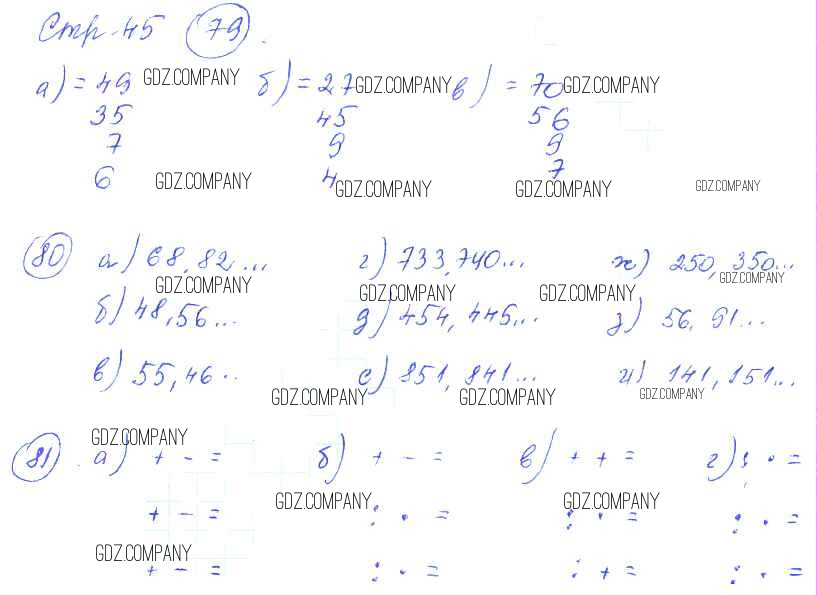 Стр. 45 79.
а) = 49 GDZ.COMPANY б) = 27 GDZ.COMPANY в) = 70 GDZ.COMPANY
35 45 56
7 9 9
6 GDZ.COMPANY 4 GDZ.COMPANY GDZ.COMPANY 7 GDZ.COMPANY
80 а) 68, 82... г) 733, 740... ж) 250, 350...
GDZ.COMPANY GDZ.COMPANY GDZ.COMPANY GDZ.COMPANY
б) 48, 56... д) 454, 445... з) 56, 91...
в) 55, 46.. е) 851, 841... и) 141, 151...
GDZ.COMPANY GDZ.COMPANY GDZ.COMPANY
GDZ.COMPANY
81 а) + - = б) + - = в) + + = г) : · =
GDZ.COMPANY GDZ.COMPANY
+ - = : · = : · = : · =
GDZ.COMPANY
+ - = : · = : + = : · =